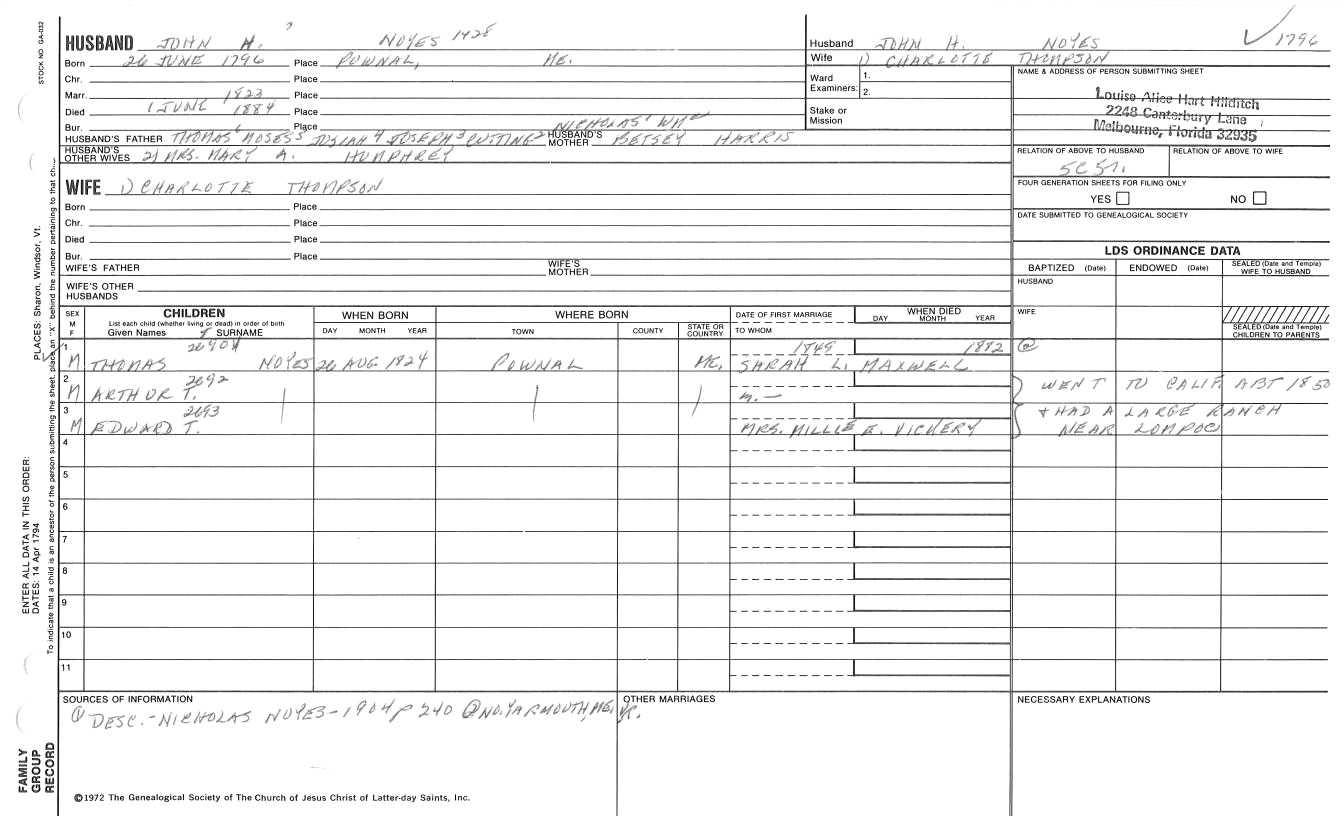 STOCK NO. GA-032
HUSBAND JOHN H. NOYES 1428
Born 26 JUNE 1796 Place POWNAL, ME.
Chr. Place
Marr. 1823 Place
Died 1 JUNE 1884 Place
Bur. Place
NICHOLAS¹ WM²
HUSBAND'S FATHER THOMAS⁶ MOSES⁵ JOSIAH⁴ JOSEPH³ CUTTING² HUSBAND'S MOTHER BETSEY HARRIS
HUSBAND'S OTHER WIVES 2) MRS. MARY A. HUMPHREY
Husband JOHN H. NOYES 1796
Wife 1) CHARLOTTE THOMPSON
Ward Examiners: 1.
2.
Stake or Mission
NAME & ADDRESS OF PERSON SUBMITTING SHEET
Louise Alice Hart Hilditch
2248 Canterbury Lane
Melbourne, Florida 32935
RELATION OF ABOVE TO HUSBAND RELATION OF ABOVE TO WIFE
5C5r.
FOUR GENERATION SHEETS FOR FILING ONLY
YES NO
DATE SUBMITTED TO GENEALOGICAL SOCIETY
WIFE 1) CHARLOTTE THOMPSON
Born Place
Chr. Place
Died Place
Bur. Place
WIFE'S FATHER WIFE'S MOTHER
WIFE'S OTHER HUSBANDS
LDS ORDINANCE DATA
BAPTIZED (Date) ENDOWED (Date) SEALED (Date and Temple) WIFE TO HUSBAND
HUSBAND
WIFE
SEALED (Date and Temple) CHILDREN TO PARENTS
SEX M F
CHILDREN
List each child (whether living or dead) in order of birth
Given Names SURNAME
WHEN BORN
DAY MONTH YEAR
WHERE BORN
TOWN COUNTY STATE OR COUNTRY
DATE OF FIRST MARRIAGE
TO WHOM
WHEN DIED
DAY MONTH YEAR
1 1849 1882 @
M THOMAS NOYES 26 AUG. 1824 POWNAL ME. SARAH L. MAXWELL
2 2692
M ARTHUR T. m. — WENT TO CALIF. ABT 1850
3 2693 + HAD A LARGE RANCH
M EDWARD T. MRS. MILLIE E. VICKERY NEAR LOMPOC
4
5
6
7
8
9
10
11
SOURCES OF INFORMATION OTHER MARRIAGES NECESSARY EXPLANATIONS
① DESC.-NICHOLAS NOYES-1904 p 240 @ NO. YARMOUTH, ME. VR.
©1972 The Genealogical Society of The Church of Jesus Christ of Latter-day Saints, Inc.
PLACES: Sharon, Windsor, Vt.
ENTER ALL DATA IN THIS ORDER:
DATES: 14 Apr 1794
To indicate that a child is an ancestor of the person submitting the sheet, place an "X" behind the number pertaining to that
FAMILY GROUP RECORD